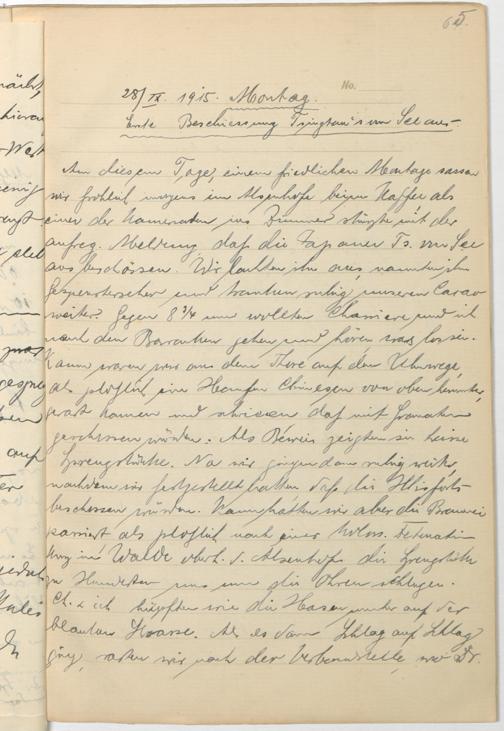 65.
No.
28/IX. 1915. Montag.
Erste Beschiessung Tsingtau's von See aus
An diesem Tage, einem friedlichen Montage sassen
wir fröhlich morgens im Alsenhofe beim Kaffee als
einer der Kameraden ins Zimmer stürzte mit der
aufreg. Meldung daß die Japaner Ts. von See
aus beschössen. Wir lachten ihn aus, nannten ihn
Gespensterseher und tranken ruhig unseren Cacao
weiter. Gegen 8¾ uhr wollten Charrière und ich
nach den Baracken gehen und hören was los sei.
Kaum waren wir aus dem Thore auf dem
als plötzlich ein Haufen Chinesen von oben herunter
gerast kamen und schrieen daß mit Granaten
geschossen würde. Als Beweis zeigten sie heisse
Sprengstücke. Na wir gingen dann ruhig weiter,
nachdem wir festgestellt hatten daß die
beschossen würden. Kaum hatten wir aber die Brauerei
passiert als plötzlich nach einer Detonati-
on im Walde oberh. d. Alsenhofs die Sprengstücke
zu Hunderten uns um die Ohren schlugen.
Ch. & ich hüpften wie die Hasen umher auf der
blanken Strasse. Als es dann Schlag auf Schlag
ging, rasten wir nach der wo Dr.